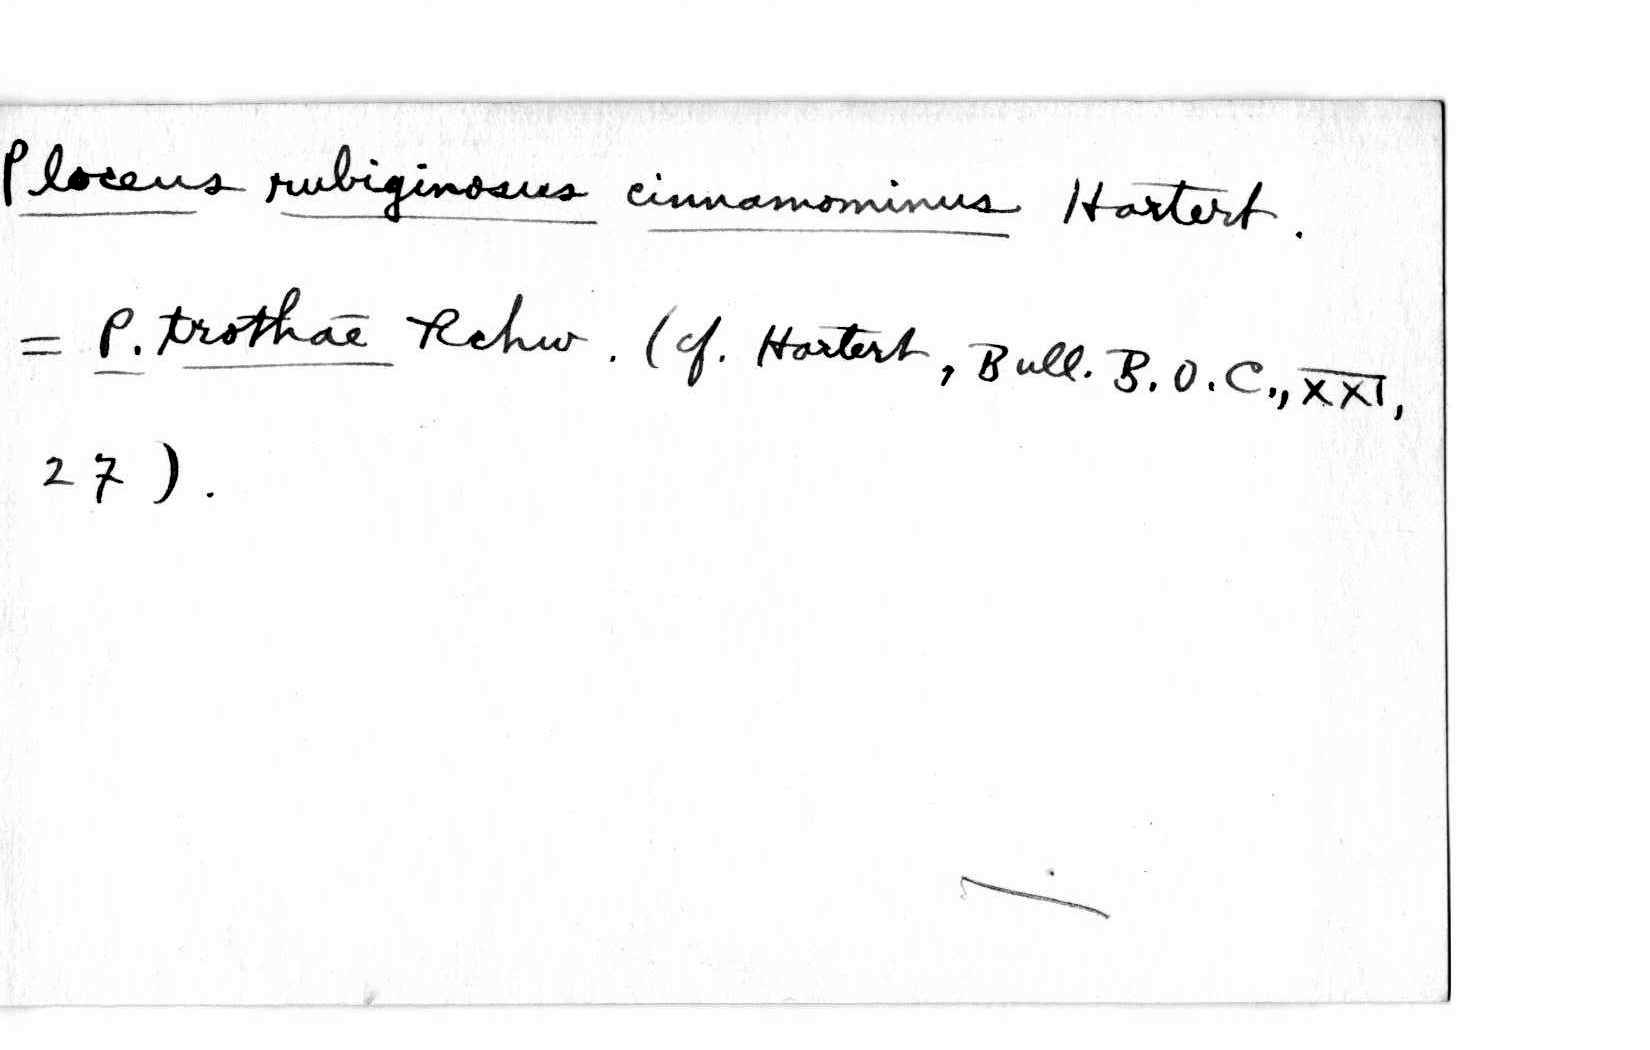 Ploceus rubiginosus cinnamominus Hartert.
= P. trothae Rchw. (cf. Hartert, Bull. B.O.C., XXI,
27).